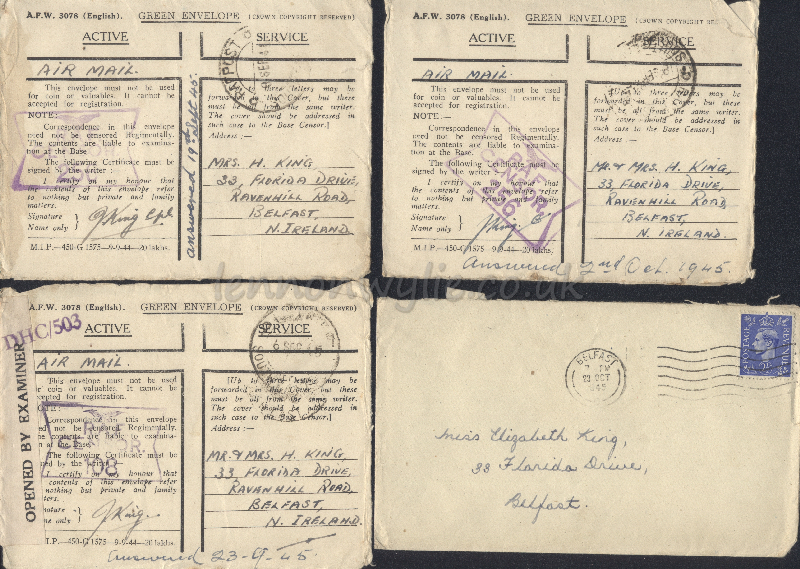 A.F.W. 3078 (English). GREEN ENVELOPE (CROWN COPYRIGHT RESERVED)
ACTIVE SERVICE
AIR MAIL.
This envelope must not be used
for coin or valuables. It cannot be
accepted for registration.
NOTE:
Correspondence in this envelope
need not be censored Regimentally.
The contents are liable to examina-
tion at the Base
The following Certificate must be
signed by the writer :
I certify on my honour that
the contents of this envelope refer
to nothing but private and family
matters.
Signature
Name only
JKing Cpl
M.I.P.—450-G 1575—9-9-44—20 lakhs.
answered 19th Sept 45.
three letters may be
forwarded in this Cover, but these
must be all from the same writer.
The cover should be addressed in
such case to the Base Censor.]
Address :—
MRS. H. KING
33, FLORIDA DRIVE,
RAVENHILL ROAD,
BELFAST,
N. IRELAND.
A.F.W. 3078 (English). GREEN ENVELOPE (CROWN COPYRIGHT RE
ACTIVE SERVICE
AIR MAIL.
This envelope must not be used
for coin or valuables. It cannot be
accepted for registration.
NOTE:—
Correspondence in this envelope
need not be censored Regimentally.
The contents are liable to examina-
tion at the Base
The following Certificate must be
signed by the writer :
I certify on my honour that
the contents of this envelope refer
to nothing but private and family
matters.
Signature
Name only
JKing
M.I.P.—450-G 1575—9-9-44—20 lakhs.
[Up to three letters may be
forwarded in this Cover, but these
must be all from the same writer.
The cover should be addressed in
such case to the Base Censor.]
Address :—
MR. & MRS. H. KING,
33, FLORIDA DRIVE,
RAVENHILL ROAD,
BELFAST,
N. IRELAND.
Answered 2nd Oct. 1945.
lennonwylie.co.uk
A.F.W. 3078 (English). GREEN ENVELOPE (CROWN COPYRIGHT RESERVED)
DHC/503
OPENED BY EXAMINER
ACTIVE SERVICE
AIR MAIL.
This envelope must not be used
for coin or valuables. It cannot be
accepted for registration.
Correspondence in this envelope
need not be censored Regimentally.
contents are liable to examina-
at the Base.
The following Certificate must be
by the writer
I certify on my honour that
contents of this envelope refer
nothing but private and family
ters.
ature
me only
JKing
I.P.—450-G 1575—9-9-44—20 lakhs.
R.A.F.
CENSOR
108
6 SEP 45
[Up to three letters may be
forwarded in this Cover, but these
must be all from the same writer.
The cover should be addressed in
such case to the Base Censor.]
Address :—
MR. & MRS. H. KING,
33 FLORIDA DRIVE,
RAVENHILL ROAD,
BELFAST,
N. IRELAND.
Answered 23-9-45.
BELFAST
PM
OCT
Miss Elizabeth King,
33 Florida Drive,
Belfast.